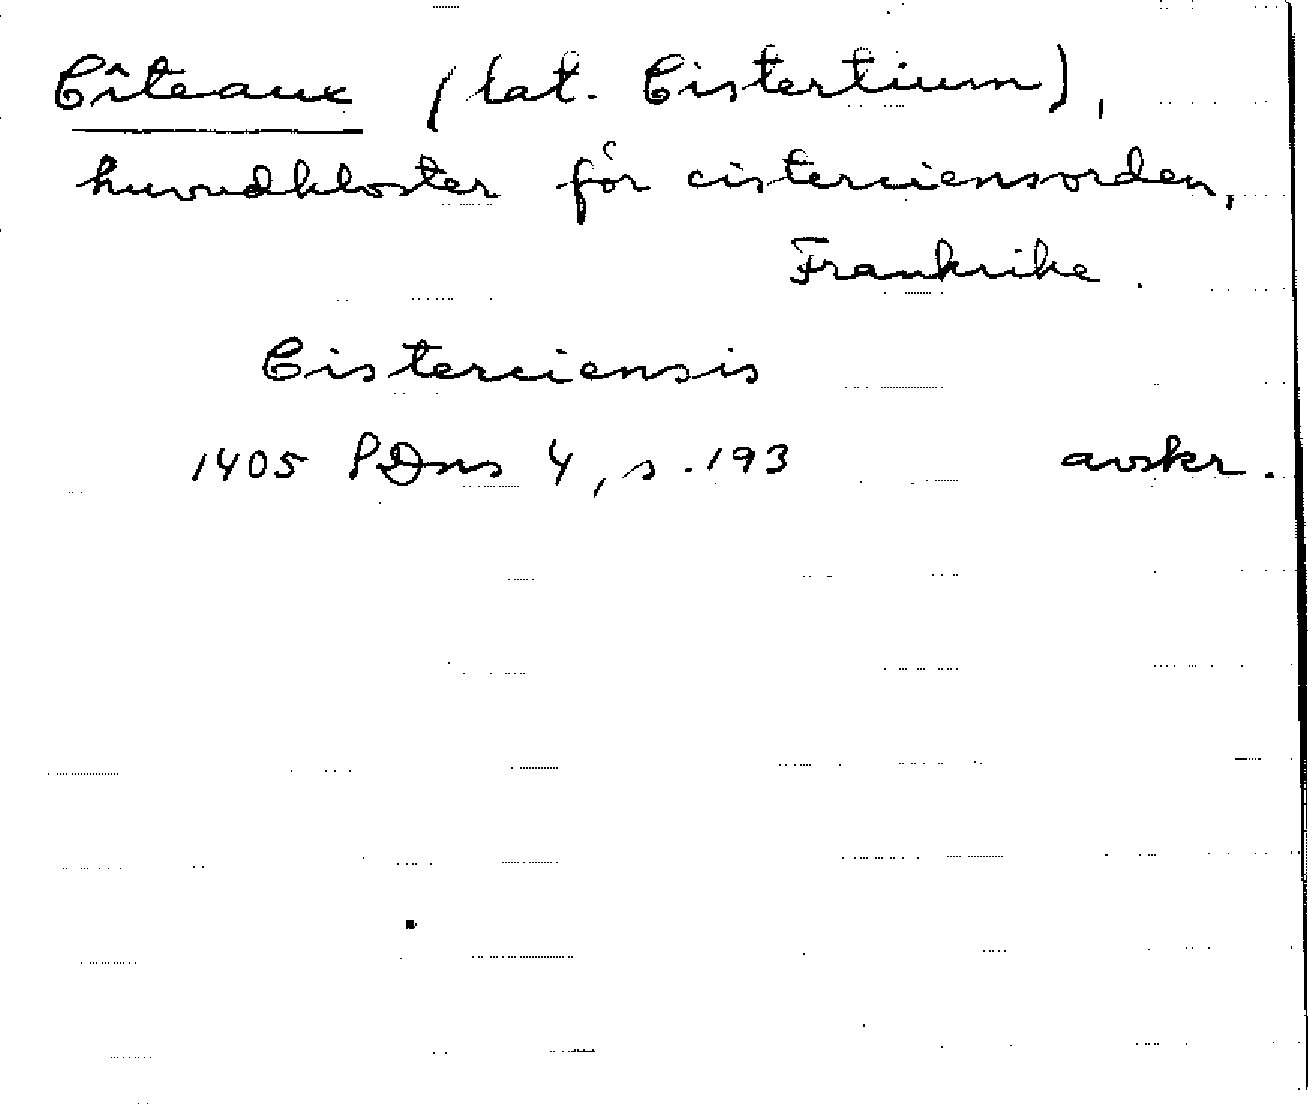 Cîteaux (lat. Cistertium),
huvudkloster för cisterciensorden,
Frankrike.
Cisterciensis
1405 PDns 4, s. 193 avskr.